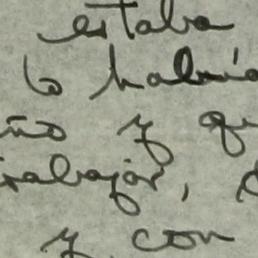 estaba
lo había
ño y qu
rabajar,
y con